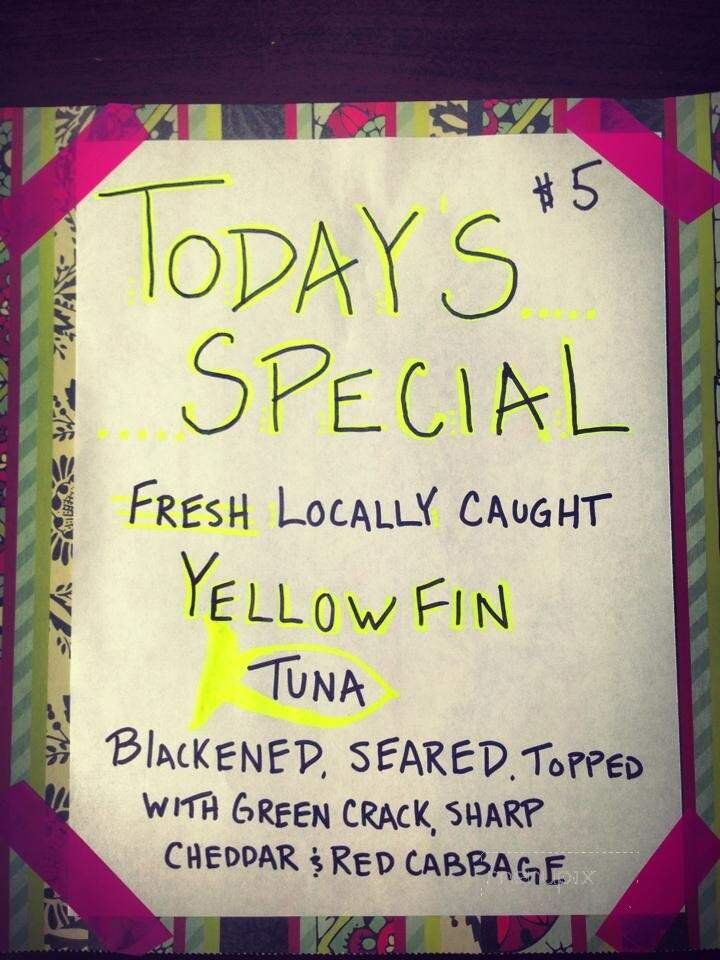 $5
TODAY'S....
.....SPECIAL
FRESH LOCALLY CAUGHT
YELLOWFIN
TUNA
BlACKENED, SEARED, TOPPED
WITH GREEN CRACK, SHARP
CHEDDAR & RED CABBAGE
menupix